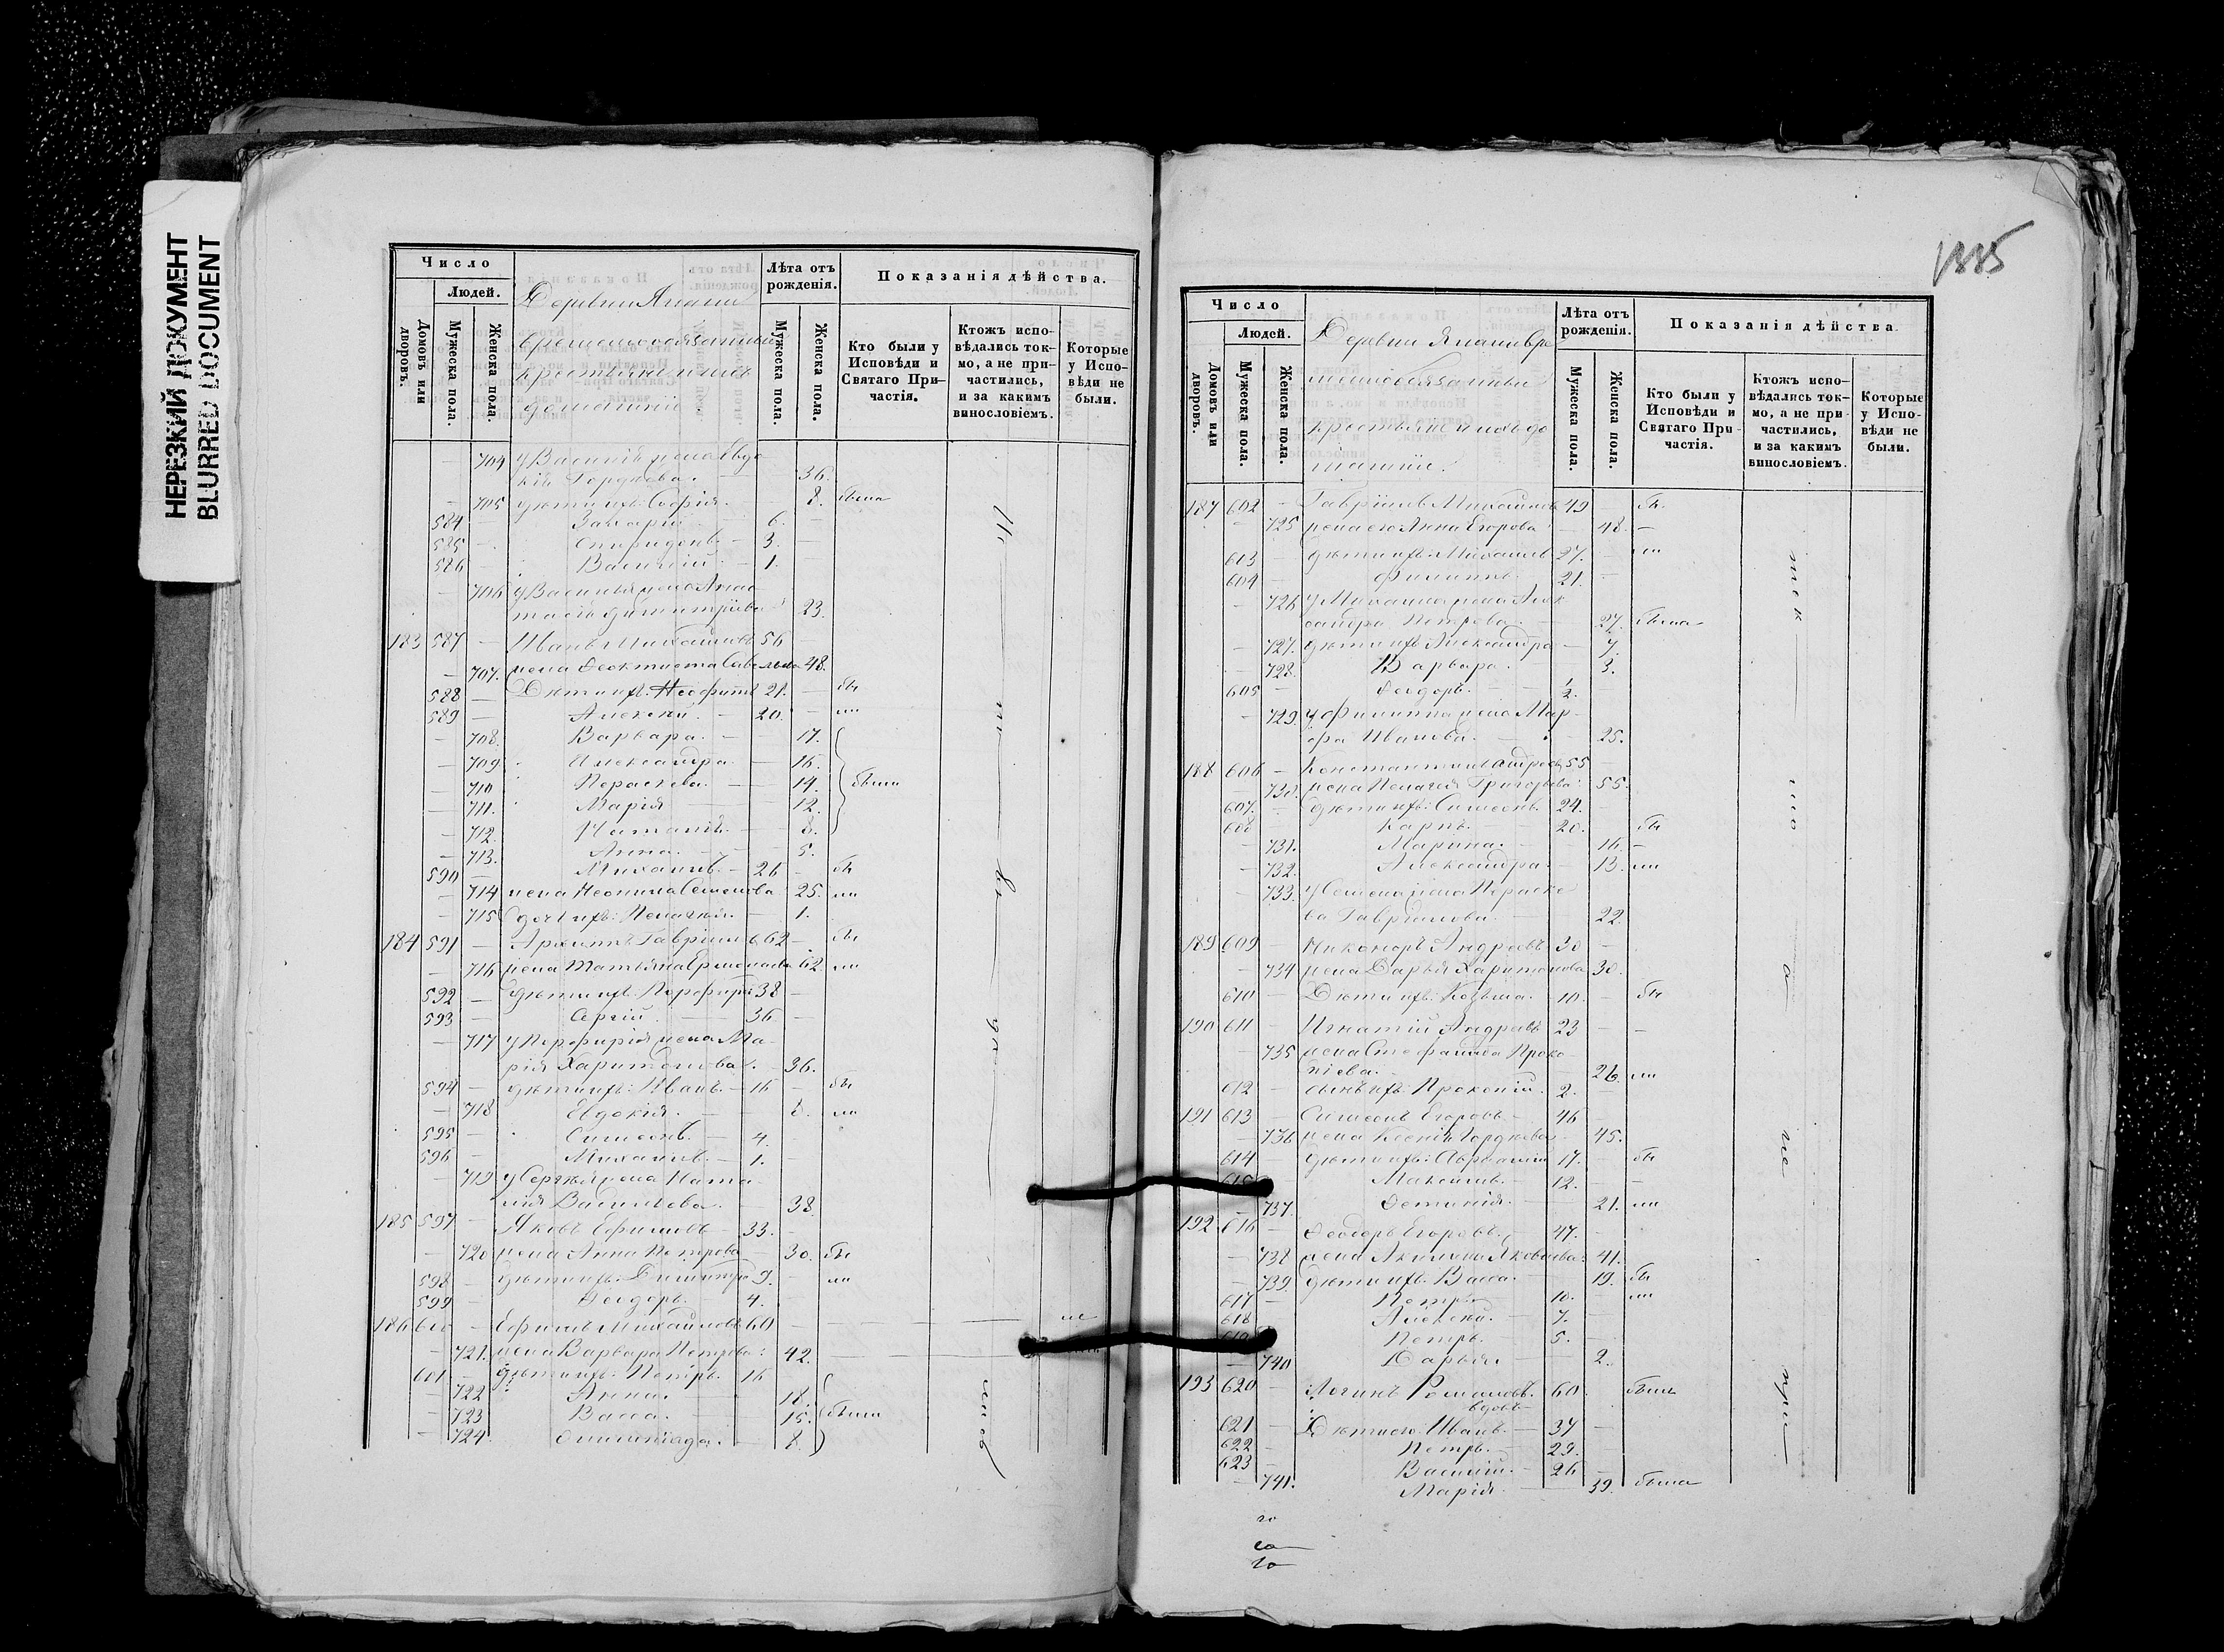 НЕРЕЗКИЙ ДОКУМЕНТ
BLURRED DOCUMENT
Число
Людей.
Домовъ или дворовъ.
Мужеска пола.
Женска пола.
Деревни
крестьяне и ихъ
домашніе.
Лѣта отъ рожденія.
Мужеска пола.
Женска пола.
Показанія дѣйства.
Кто были у Исповѣди и Святаго Причастія.
Ктожъ исповѣдались токмо, а не причастились, и за какимъ винословіемъ.
Которые у Исповѣди не были.
704 у Василія жена Евдо
кія Гордѣева. 36.
705 дѣти ихъ: Софія. 8. была
584 Захарій 6.
585 Спиридонъ 3.
586 Василій 1.
706 у Василья жена Анас
тасія Димитріева 23.
183 587 Иванъ Михайловъ 56
707. жена Феоктиста Савельева 48.
588 Дѣти ихъ: Неофитъ 21. бы
589 Алексѣй. 20. ли
708. Варвара. 17.
709 Александра. 16.
710 Параскева. 14. были
711. Марія 12.
712. Наталія. 8.
713. Анна. 5.
590 Михаилъ. 26 бы
714 жена Неонила Семенова 25. ли
715 дочь ихъ: Пелагія. 1.
184 591 Архипъ Гавріиловъ 62 бы
716 жена Татьяна 62. ли
592 дѣти ихъ: Порфирій 38
593 Сергій. 36.
717 у Порфирія жена Ма-
рія Харитонова. 36.
594 дѣти ихъ: Иванъ. 16 бы
718 Евдокія. 8. ли
595 Симеонъ. 4.
596 Михаилъ. 1.
719 у Сергѣя жена Ната-
лія Васильева. 38.
185 597 Яковъ Ефимовъ 33.
720 жена Анна Петрова 30. бы
598 дѣти ихъ: Димитрій 9. ли
599 Феодоръ. 4.
186 600 Ефимъ Михайловъ 60 не
721. жена Варвара Петрова 42.
601 дѣти ихъ: Петръ. 16
722 Анна. 18.
723 Васса. 15. были
724 Олимпіада. 8.
1115
Число
Людей.
Домовъ или дворовъ.
Мужеска пола.
Женска пола.
Деревни
крестьяне и ихъ до
машніе.
Лѣта отъ рожденія.
Мужеска пола.
Женска пола.
Показанія дѣйства
Кто были у Исповѣди и Святаго Причастія.
Ктожъ исповѣдались токмо, а не причастились, и за какимъ винословіемъ.
Которые у Исповѣди не были.
187 602 Гавріилъ Михайловъ 49 бы
725 жена его Анна Егорова 48.
603 дѣти ихъ: Михаилъ 27. ли
604 Филиппъ. 21.
726 у Михаила жена Алек
сандра Петрова. 27. была
727. дѣти ихъ: Александра 7.
728. Варвара. 3.
605 Феодоръ. 2.
729. у Филиппа жена Мар-
фа Иванова. 25.
188 606 Константинъ Андреевъ 55
730. жена Пелагея Григорьева 55.
607. дѣти ихъ: Симеонъ. 24.
608 Карпъ. 20. бы
731. Марина. 16.
732. Александра. 13. ли
733. у Семена жена Параске
ва Гавріилова. 22.
189 609 Никаноръ Андреевъ 30
734 жена Дарья Харитонова 30.
610 Дѣти ихъ: Козьма. 10. бы
190 611 Игнатій Андреевъ 23
735 жена Стефанида Проко-
піева. 26. ли
612 сынъ ихъ: Прокопій. 2.
191 613 Симеонъ Егоровъ 46
736 жена Ксенія Гордѣева 45.
614 дѣти ихъ: Аврамій 17. бы
615 Максимъ. 12.
737. Фетинія. 21. ли
192. 616 Феодоръ Егоровъ. 47.
738 жена Акилина Яковлева: 41.
739. дѣти ихъ: Васса. 19. бы
617 Петръ 10. ли
618 Алексѣй. 7.
619 Петръ. 5.
740 Дарья. 2.
193 620 Логинъ Романовъ. 60. былъ
вдовъ
621 Дѣти его: Иванъ. 37
622 Петръ. 29.
623 Василій. 26
741. Марія. 39. была